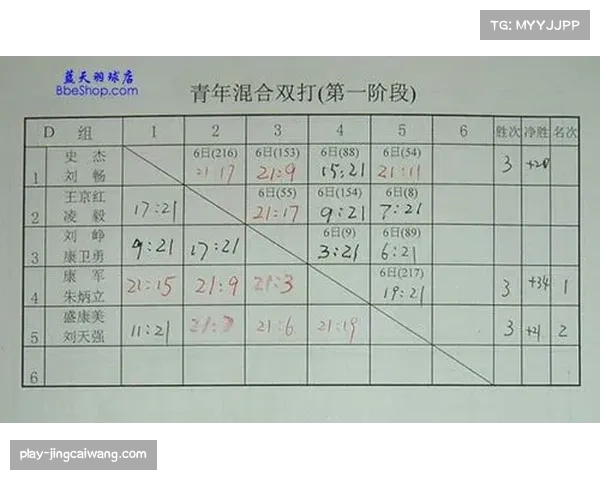 TG: MYYJJPP
蓝天羽球店
BbeShop.com
青年混合双打(第一阶段)
D 组 1 2 3 4 5 6 胜次 净胜 名次
1 史杰 刘畅 6日(216) 21:17 6日(153) 21:9 6日(88) 15:21 6日(54) 21:11 3
2 王京红 凌毅 17:21 6日(55) 21:17 6日(154) 9:21 6日(8) 7:21
3 刘峥 康卫勇 9:21 17:21 6日(9) 3:21 6日(89) 6:21
4 康军 朱炳立 21:15 21:9 21:3 6日(217) 19:21 3 +34 1
5 盛康美 刘天强 11:21 21:7 21:6 21:19 3 +21 2
6
play-jingcaiwang.com